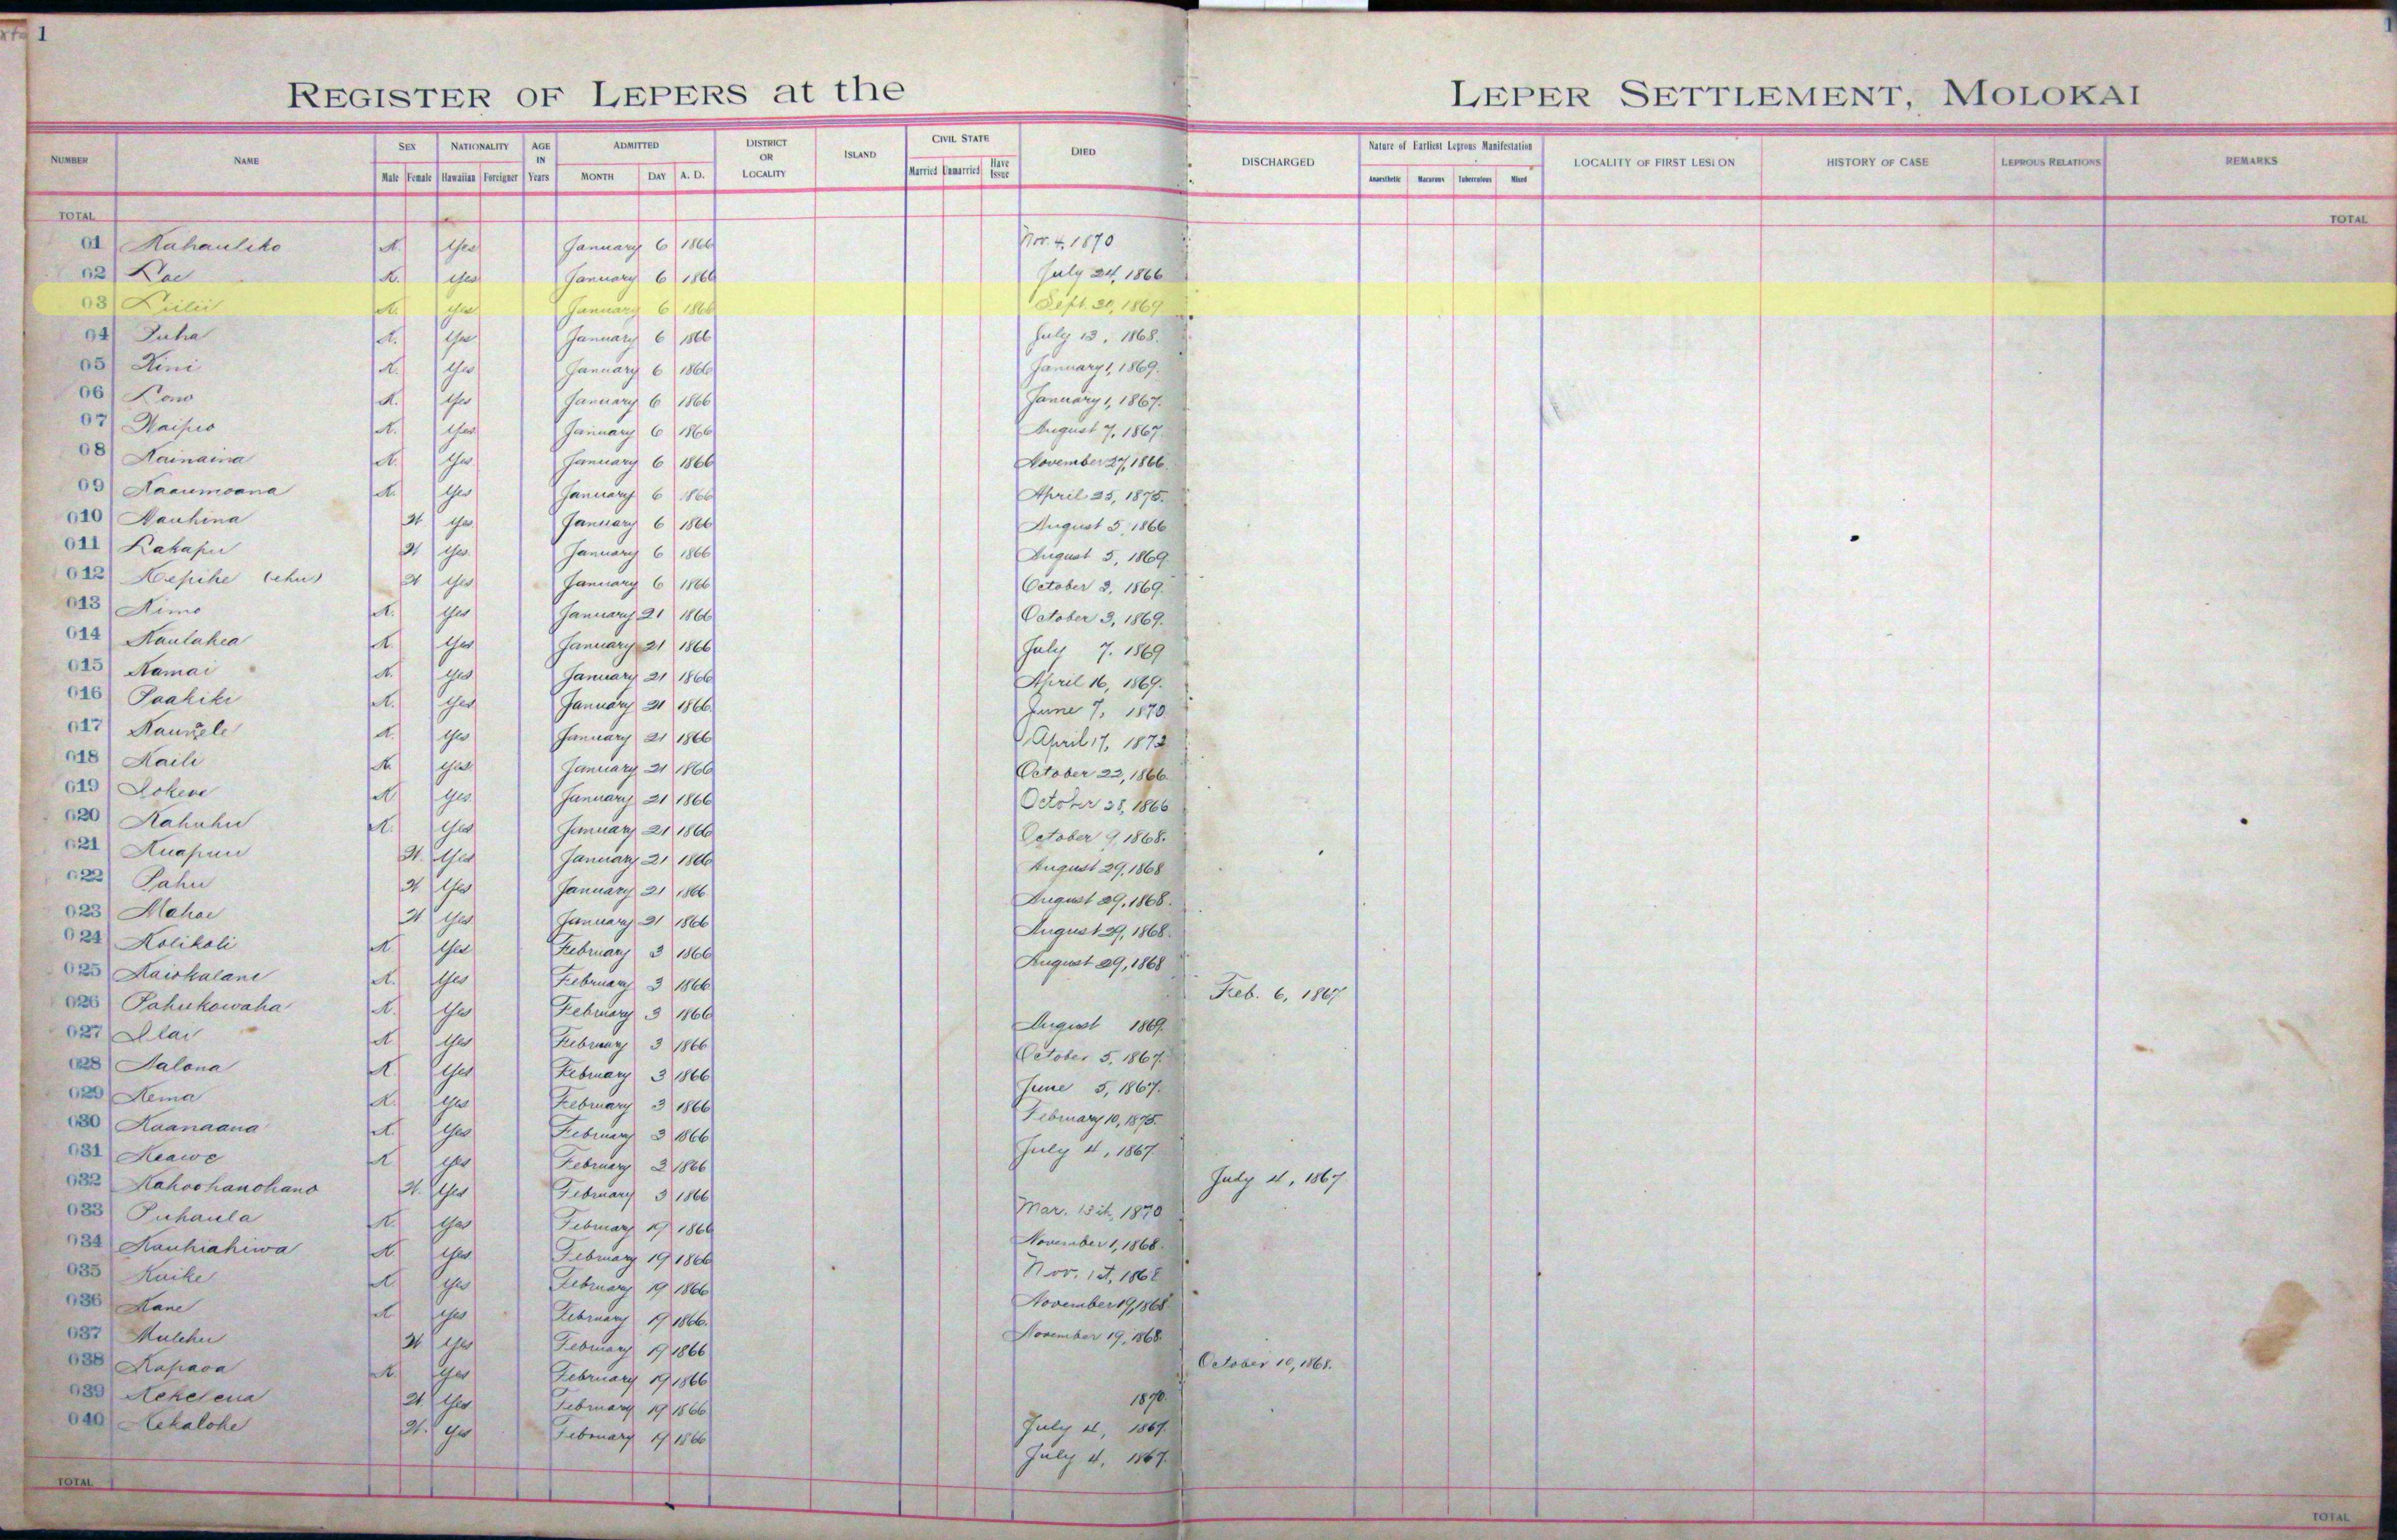 1
REGISTER OF LEPERS at the LEPER SETTLEMENT, MOLOKAI
NUMBER NAME SEX NATIONALITY AGE IN Years ADMITTED DISTRICT OR LOCALITY ISLAND CIVIL STATE DIED DISCHARGED Nature of Earliest Leprous Manifestation LOCALITY OF FIRST LESION HISTORY OF CASE LEPROUS RELATIONS REMARKS
Male Female Hawaiian Foreigner MONTH DAY A. D. Married Unmarried Have Issue Anaesthetic Macurous Tuberculous Mixed
TOTAL TOTAL
01 Kahauliko K. Yes January 6 1866 Nov. 4, 1870
02 Lae K. Yes January 6 1866 July 24, 1866
03 Liilii K. Yes January 6 1866 Sept. 20, 1869
04 Puha K. Yes January 6 1866 July 13, 1868.
05 Kini K. Yes January 6 1866 January 1, 1869.
06 Lono K. Yes January 6 1866 January 1, 1867.
07 Waipio K. Yes January 6 1866 August 7, 1867.
08 Kainaina K. Yes January 6 1866 November 27, 1866.
09 Kaaumoana K. Yes January 6 1866 April 25, 1875.
010 Nauhina W Yes January 6 1866 August 5, 1866
011 Lakapu W Yes. January 6 1866 August 5, 1869.
012 Kepihe (ehu) W Yes January 6 1866 October 3, 1869.
013 Kimo K. Yes January 21 1866 October 3, 1869.
014 Kaulahea K. Yes January 21 1866 July 7. 1869
015 Kamai K. Yes January 21 1866 April 16, 1869.
016 Paakiki K. Yes January 21 1866. June 7, 1870.
017 K. Yes January 21 1866 April 17, 1872
018 Kaili K Yes January 21 1866 October 22, 1866.
019 Lokene K Yes. January 21 1866 October 28, 1866
020 Kahuhu K. Yes January 21 1866 October 9, 1868.
021 Kuapuu W. Yes January 21 1866 August 29, 1868
022 Pahu W Yes January 21 1866 August 29, 1868.
023 Mahoe W Yes January 21 1866 August 29, 1868.
024 Kolikoli K. Yes February 3 1866 August 29, 1868
025 Kaiokalani K. Yes February 3 1866 Feb. 6, 1867
026 Pahukowaha K. Yes February 3 1866 August 1869.
027 Ilai K Yes February 3 1866 October 5, 1867.
028 Nalona K. Yes February 3 1866 June 5, 1867.
029 Kema K. Yes February 3 1866 February 10, 1875.
030 Kaanaana K. Yes February 3 1866 July 4, 1867
031 Keawe K Yes February 3 1866 July 4, 1867
032 Kahoohanohano W. Yes February 3 1866 Mar. 15th, 1870
033 Puhaula K. Yes February 19 1866 November 1, 1868.
034 Kauhiahiwa K. Yes February 19 1866 Nov. 1st, 1868
035 Kuike K Yes February 19 1866 November 19, 1868
036 Kane K Yes February 19 1866. November 19, 1868.
037 Mulehu W Yes February 19 1866 October 10, 1868.
038 Kapaoa K. Yes February 19 1866 1870.
039 Kekelena W Yes February 19 1866 July 4, 1867.
040 Kekalohe W. Yes February 19 1866 July 4, 1867.
TOTAL TOTAL